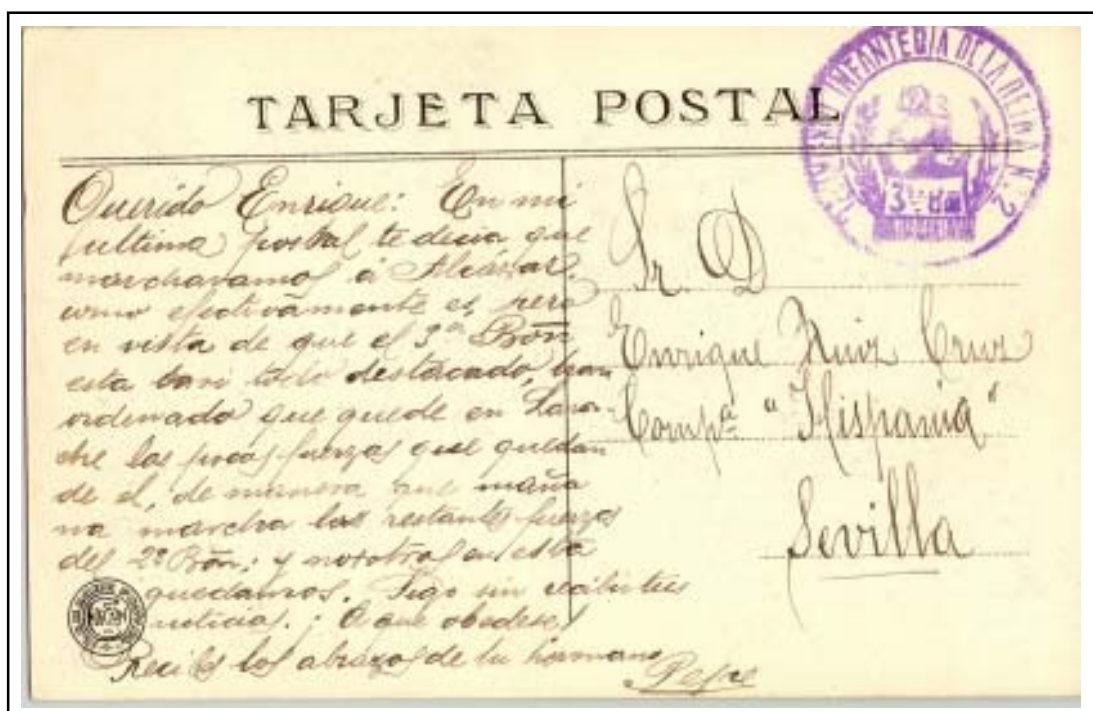 TARJETA POSTAL
INFANTERIA DE LA REINA Nº 2
3er Bón
Querido Enrique: En mi
ultima postal te decia que
marchavamos á Alcázar,
como efectivamente es, pero
en vista de que el 3er Bón
esta casi todo destacado, han
ordenado que quede en Lara-
che las pocas fuerzas que quedan
de el, de manera que maña
na marcha las restantes fuerzas
del 2º Bón; y nosotros en esta
quedamos. Sigo sin recibir tus
noticias. ¿ A que obedese?
Recibe los abrazos de tu hermano
Pepe
Sr. D
Enrique Ruiz Cruz
Compª "Hispania"
Sevilla